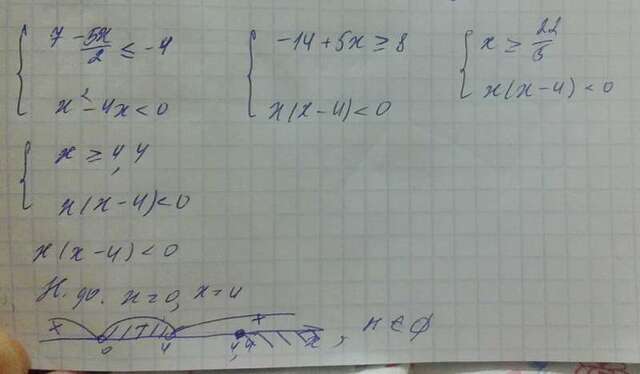 { 7 - 5x/2 ≤ -4
x² - 4x < 0
{ -14 + 5x ≥ 8
x(x-4) < 0
{ x ≥ 22/5
x(x-4) < 0
{ x ≥ 4,4
x(x-4) < 0
x(x-4) < 0
Н. ф. x=0, x=4
+ - +
0 4 4,4 x , x ∈ ∅